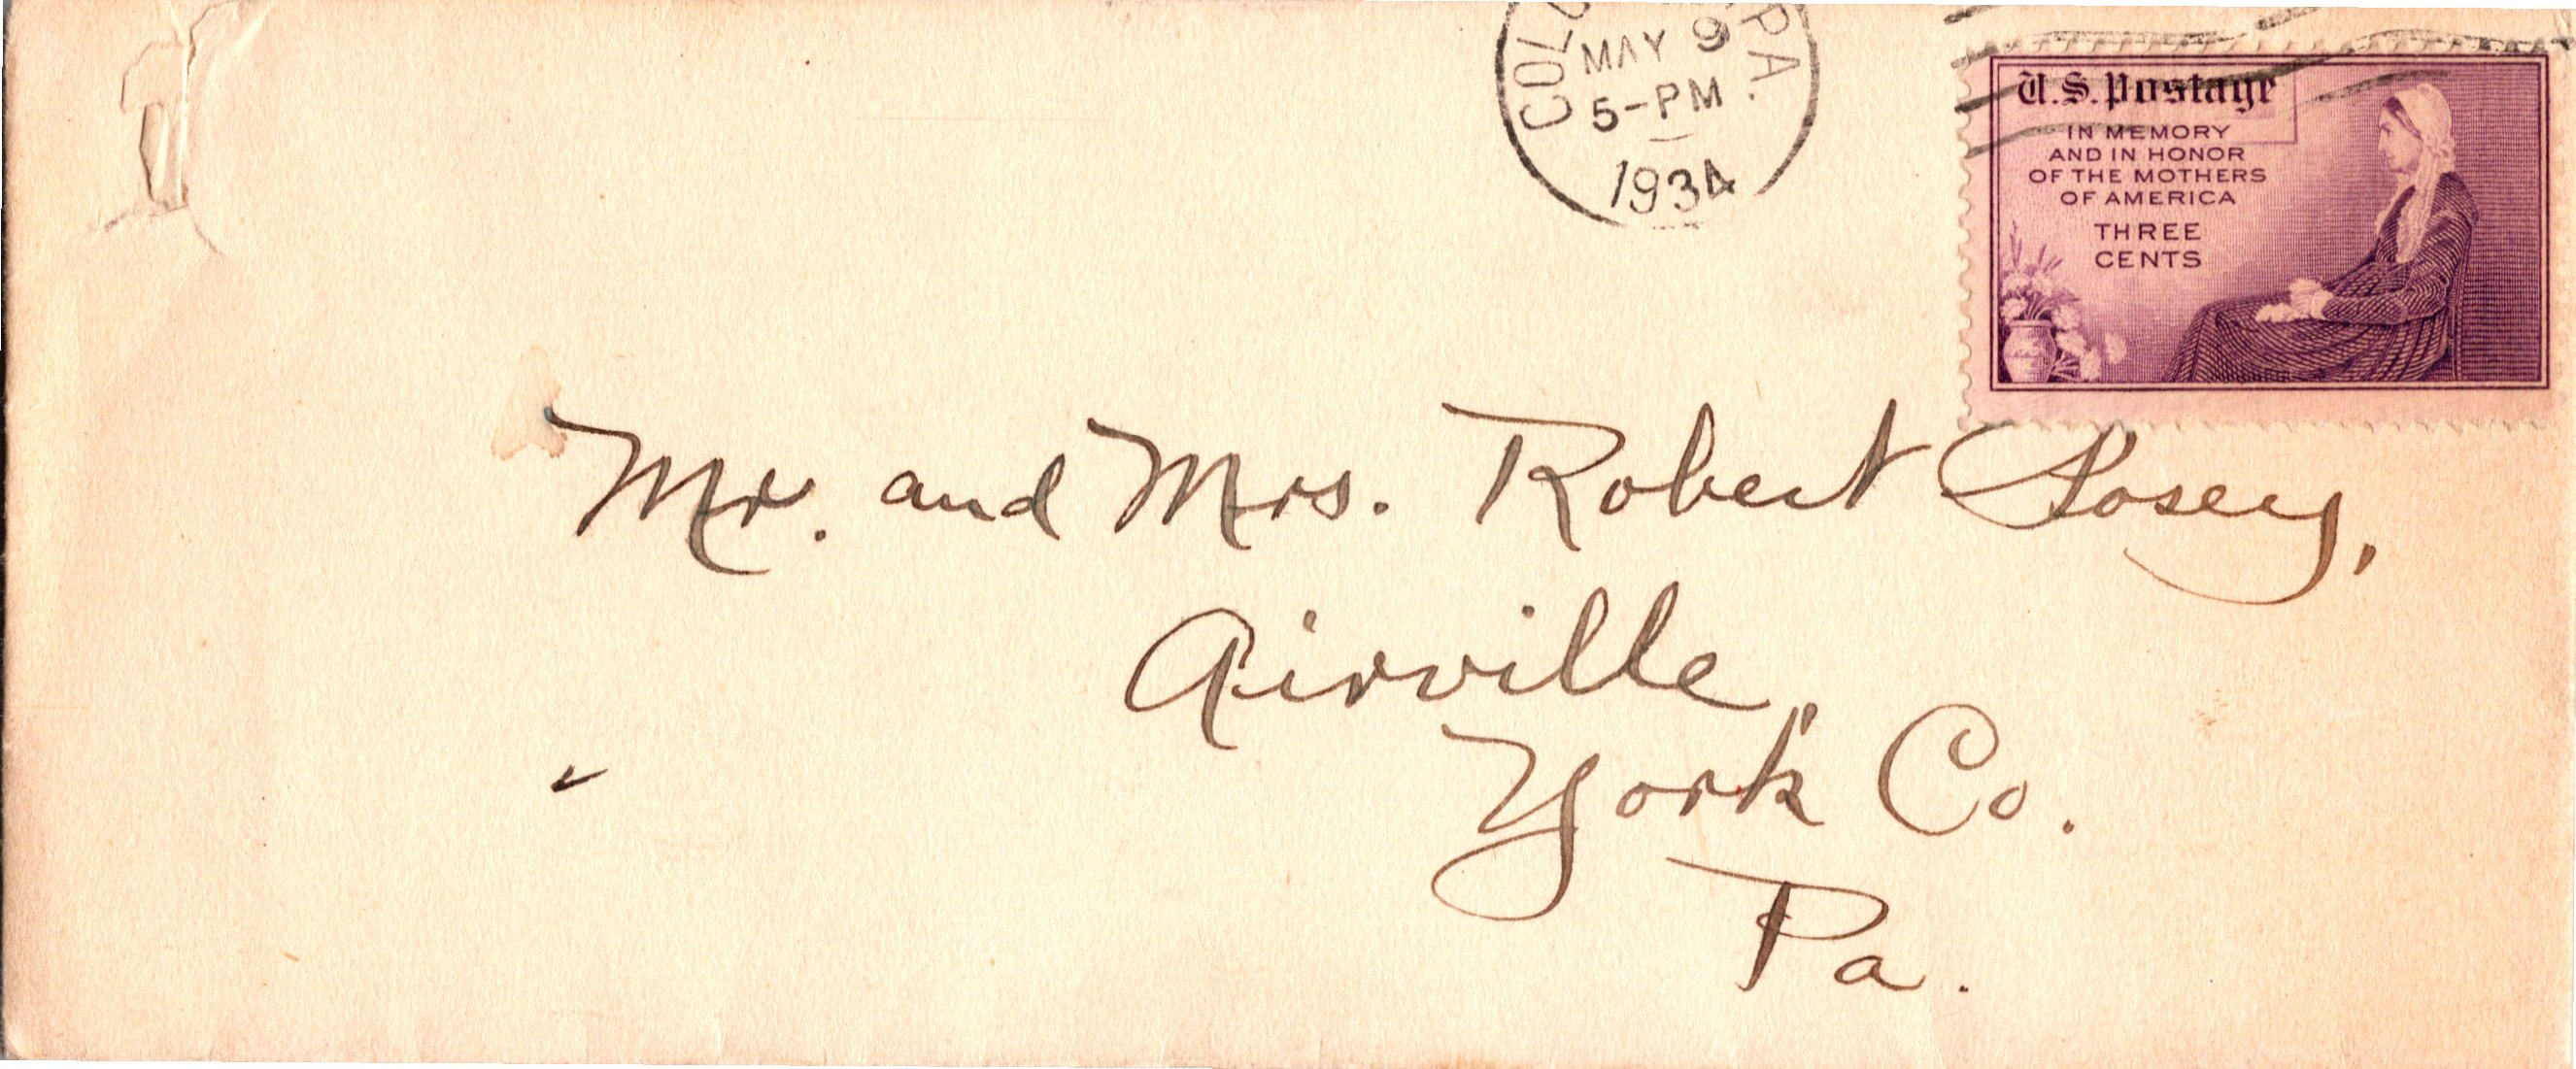 MAY 9
PA.
5-PM
1934
U.S. Postage
IN MEMORY
AND IN HONOR
OF THE MOTHERS
OF AMERICA
THREE
CENTS
Mr. and Mrs. Robert
Airville,
York Co.
Pa.